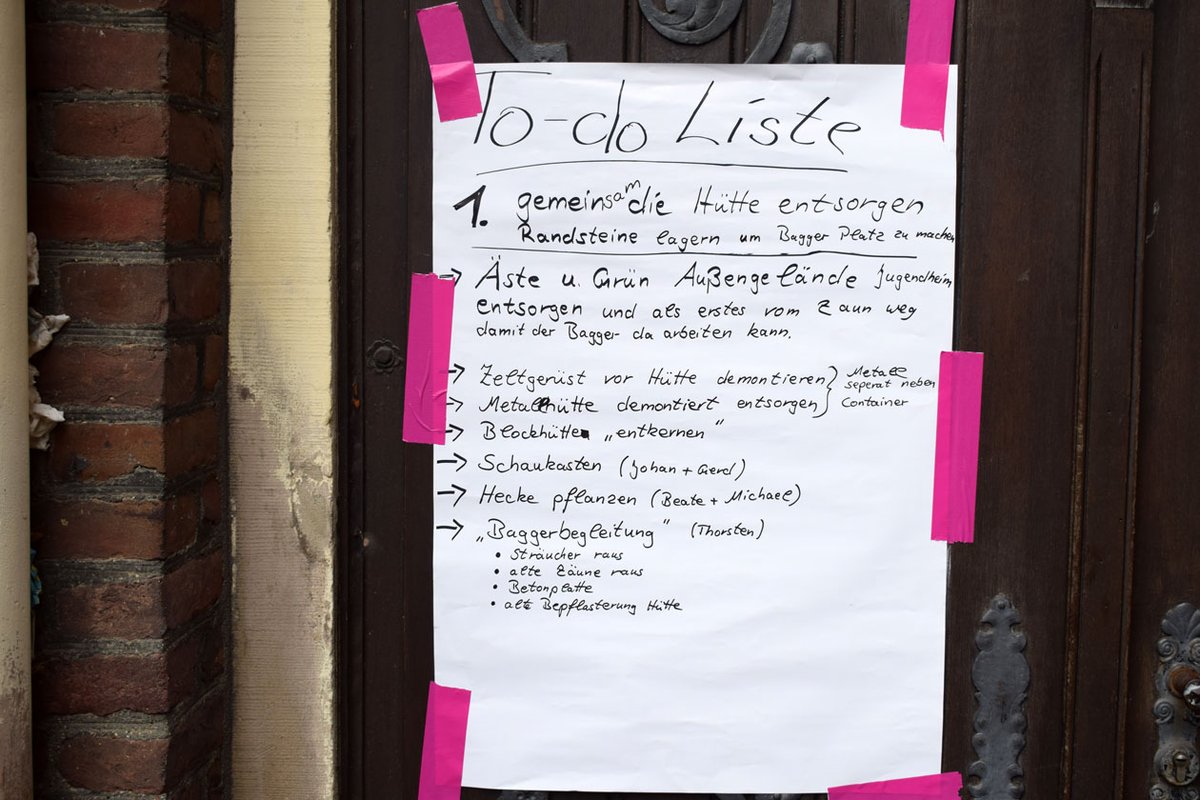 To-do Liste
1. gemeinsam die Hütte entsorgen
Randsteine lagern um Bagger Platz zu machen
→ Äste u. Grün Außengelände Jugendheim
entsorgen und als erstes vom Zaun weg
damit der Bagger da arbeiten kann.
→ Zeltgerüst vor Hütte demontieren } Metall
seperat neben
→ Metallhütte demontiert entsorgen } Container
→ Blockhütte „entkernen"
→ Schaukasten (Johan + Gerd)
→ Hecke pflanzen (Beate + Michael)
→ „Baggerbegleitung" (Thorsten)
• Sträucher raus
• alte Zäune raus
• Betonplatte
• alte Bepflasterung Hütte